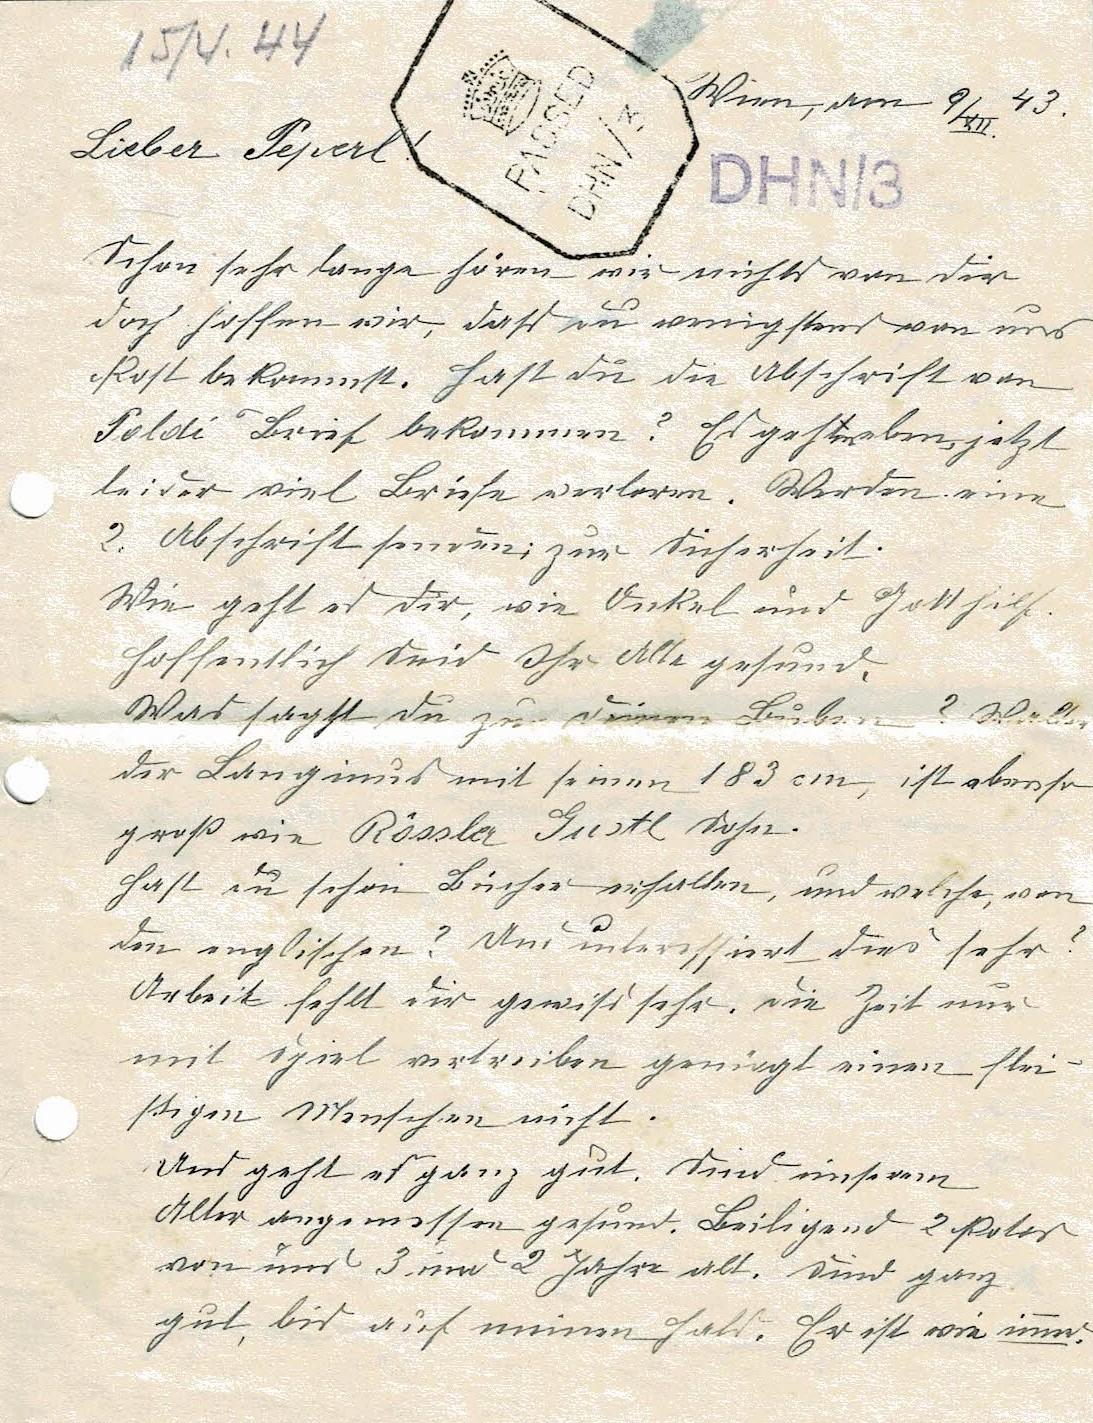 15/4. 44
PASSED
DHN/3
Wien, am 9/XII. 43.
DHN/3
Lieber Peperl!
Schon sehr lange hören wir nichts von dir
doch hoffen wir, dass du wenigstens von uns
Post bekommst. Hast du die Abschrift von
Poldi Brief bekommen? Es gehen eben jetzt
leider viel Briefe verloren. Werden eine
2. Abschrift senden; zur Sicherheit.
Wie geht es dir, wie Onkel und Gotthilf.
Hoffentlich Seid Ihr Alle gesund.
Was sagst du zu deinen Buben? Walter
der Langinus mit seinen 183 cm, ist ebenso
groß wie Rössler Gustl Sohn.
Hast du schon Bücher erhalten, und welche, von
den englischen? Uns interessiert dies sehr?
Arbeit fehlt dir gewiss sehr. Die Zeit nur
mit Spiel vertreiben genügt einen flei-
ßigen Menschen nicht.
Uns geht es ganz gut. Sind unserem
Alter angemessen gesund. Beiligend 2 Fotos
von uns 3 und 2 Jahre alt. Sind ganz
gut, bis auf meinen Hals. Er ist wie immer.